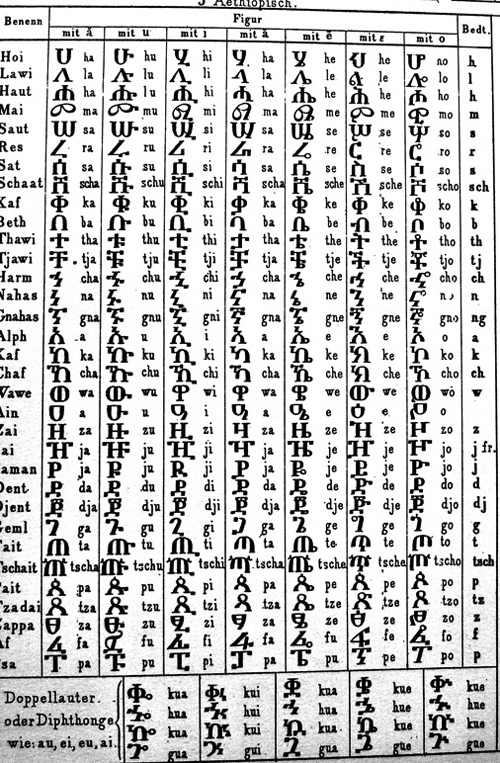 J Aethiopisch.
Benenn Figur Bedt.
mit ă mit u mit ı mit â mit ê mit ε mit o
Hoi ሀ ha ሁ hu ሂ hi ሃ ha ሄ he ህ he ሆ ho h
Lawi ለ la ሉ lu ሊ li ላ la ሌ le ል le ሎ lo l
Haut ሐ ha ሑ hu ሒ hi ሓ ha ሔ he ሕ he ሖ ho h
Mai መ ma ሙ mu ሚ mi ማ ma ሜ me ም me ሞ mo m
Saut ሠ sa ሡ su ሢ si ሣ sa ሤ se ሥ se ሦ so s
Res ረ ra ሩ ru ሪ ri ራ ra ሬ re ር re ሮ ro r
Sat ሰ sa ሱ su ሲ si ሳ sa ሴ se ስ se ሶ so s
Schaat ሸ scha ሹ schu ሺ schi ሻ scha ሼ sche ሽ sche ሾ scho sch
Kaf ቀ ka ቁ ku ቂ ki ቃ ka ቄ ke ቅ ke ቆ ko k
Beth በ ba ቡ bu ቢ bi ባ ba ቤ be ብ be ቦ bo b
Thawi ተ tha ቱ thu ቲ thi ታ tha ቴ the ት the ቶ tho th
Tjawi ቸ tja ቹ tju ቺ tji ቻ tja ቼ tje ች tje ቾ tjo tj
Harm ኀ cha ኁ chu ኂ chi ኃ cha ኄ che ኅ che ኆ cho ch
Nahas ነ na ኑ nu ኒ ni ና na ኔ ne ን ne ኖ n
Gnahas ኘ gna ኙ gnu ኚ gni ኛ gna ኜ gne ኝ gne ኞ gno ng
Alph አ a ኡ u ኢ i ኣ a ኤ e እ e ኦ o a
Kaf ከ ka ኩ ku ኪ ki ካ ka ኬ ke ክ ke ኮ ko k
Chaf ኸ cha ኹ chu ኺ chi ኻ cha ኼ che ኽ che ኾ cho ch
Wawe ወ wa ዉ wu ዊ wi ዋ wa ዌ we ው we ዎ wo w
Ain ዐ a ዑ u ዒ i ዓ a ዔ e ዕ e ዖ o
Zai ዘ za ዙ zu ዚ zi ዛ za ዜ ze ዝ ze ዞ zo z
ai ዠ ja ዡ ju ዢ ji ዣ ja ዤ je ዥ je ዦ jo j fr.
aman የ ja ዩ ju ዪ ji ያ ja ዬ je ይ je ዮ jo j
Dent ደ da ዱ du ዲ di ዳ da ዴ de ድ de ዶ do d
Djent ጀ dja ጁ dju ጂ dji ጃ dja ጄ dje ጅ dje ጆ djo dj
Geml ገ ga ጉ gu ጊ gi ጋ ga ጌ ge ግ ge ጎ go g
Tait ጠ ta ጡ tu ጢ ti ጣ ta ጤ te ጥ te ጦ to t
Tschait ጨ tscha ጩ tschu ጪ tschi ጫ tscha ጬ tsche ጭ tsche ጮ tscho tsch
ait ጰ pa ጱ pu ጲ pi ጳ pa ጴ pe ጵ pe ጶ po p
Tzadai ጸ tza ጹ tzu ጺ tzi ጻ tza ጼ tze ጽ tze ጾ tzo tz
appa ፀ za ፁ zu ፂ zi ፃ za ፄ ze ፅ ze ፆ zo z
Af ፈ fa ፉ fu ፊ fi ፋ fa ፌ fu ፍ fe ፎ fo f
sa ፐ pa ፑ pu ፒ pi ፓ pa ፔ pu ፕ pe ፖ po p
Doppellauter ቈ kua ቊ kui ቋ kua ቌ kue ቍ kue
oder Diphthonge ኈ hua ኊ hui ኋ hua ኌ hue ኍ hue
wie: au, ei, eu, ai. ኰ kua ኲ kui ኳ kua ኴ kue ኵ kue
ጐ gua ጒ gui ጓ gua ጔ gue ጕ gue